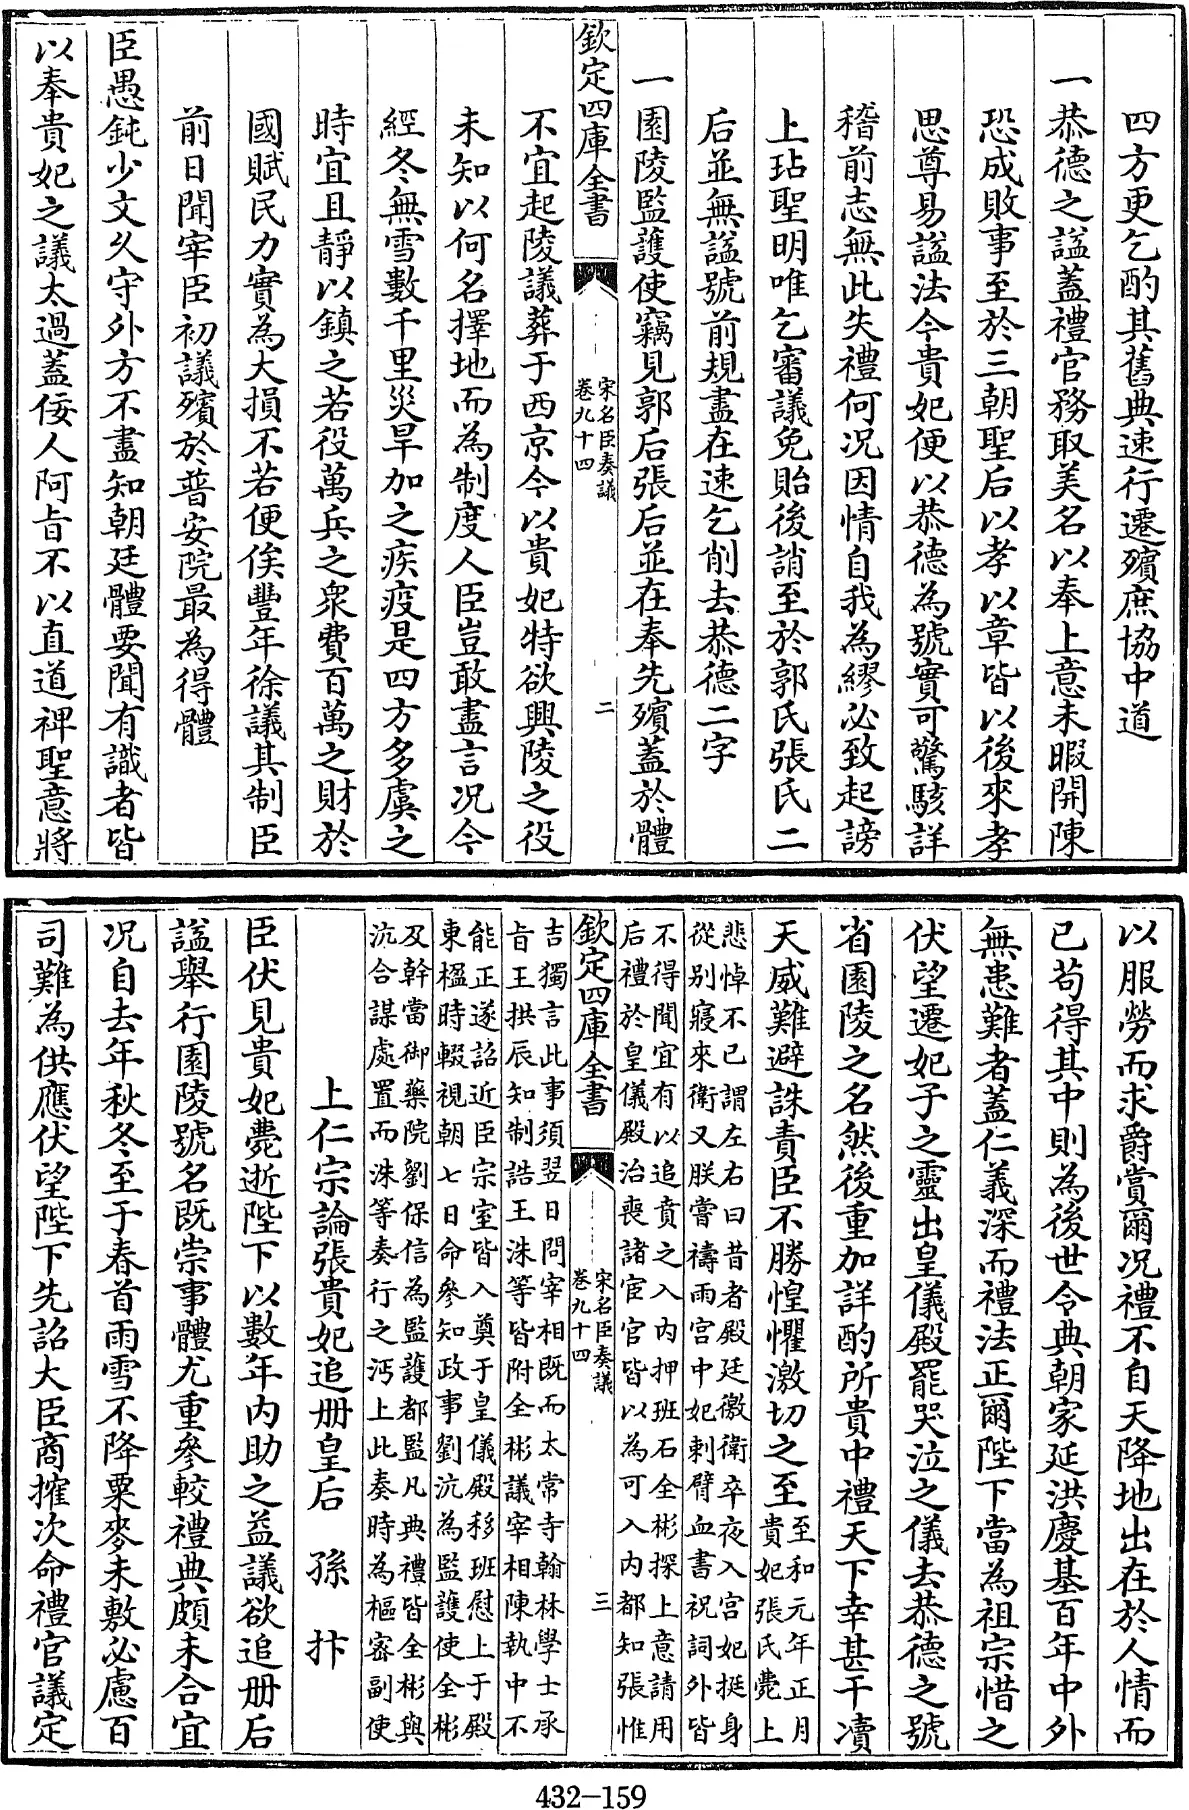 四方更乞酌其舊典速行遷殯庶協中道
一恭德之謚蓋禮官務取美名以奉上意未暇開陳
恐成敗事至於三朝聖后以孝以章皆以後來孝
思尊易謚法今貴妃便以恭德為號實可驚駭詳
稽前志無此失禮何况因情自我為繆必致起謗
上玷聖明唯乞審議免貽後誚至於郭氏張氏二
后並無謚號前規盡在速乞削去恭德二字
一園陵監護使竊見郭后張后並在奉先殯蓋於體
欽定四庫全書
宋名臣奏議
卷九十四
二
不宜起陵議葬于西京今以貴妃特欲興陵之役
未知以何名擇地而為制度人臣豈敢盡言况今
經冬無雪數千里災旱加之疾疫是四方多虞之
時宜且靜以鎮之若役萬兵之衆費百萬之財於
國賦民力實為大損不若便俟豐年徐議其制臣
前日聞宰臣初議殯於普安院最為得體
臣愚鈍少文久守外方不盡知朝廷體要聞有識者皆
以奉貴妃之議太過蓋佞人阿㫖不以直道裨聖意將
以服勞而求爵賞爾况禮不自天降地出在於人情而
已苟得其中則為後世令典朝家延洪慶基百年中外
無患難者蓋仁義深而禮法正爾陛下當為祖宗惜之
伏望遷妃子之靈出皇儀殿罷哭泣之儀去恭德之號
省園陵之名然後重加詳酌所貴中禮天下幸甚干凟
天威難避誅責臣不勝惶懼激切之至
至和元年正月
貴妃張氏薨上
悲悼不已謂左右曰昔者殿廷徼衛卒夜入宫妃挺身
從别寢來衛又朕嘗禱雨宫中妃刺臂血書祝詞外皆
不得聞宜有以追賁之入内押班石全彬探上意請用
后禮於皇儀殿治喪諸宦官皆以為可入内都知張惟
欽定四庫全書
宋名臣奏議
卷九十四
三
吉獨言此事須翌日問宰相既而太常寺翰林學士承
㫖王拱辰知制誥王洙等皆附全彬議宰相陳執中不
能正遂詔近臣宗室皆入奠于皇儀殿移班慰上于殿
東楹時輟視朝七日命參知政事劉沆為監護使全彬
及幹當御藥院劉保信為監護都監凡典禮皆全彬與
沆合謀處置而洙等奏行之沔上此奏時為樞密副使
上仁宗論張貴妃追册皇后　孫抃
臣伏見貴妃薨逝陛下以數年内助之益議欲追册后
謚舉行園陵號名既崇事體尤重參較禮典頗未合宜
况自去年秋冬至于春首雨雪不降粟麥未敷必慮百
司難為供應伏望陛下先詔大臣商搉次命禮官議定
432-159